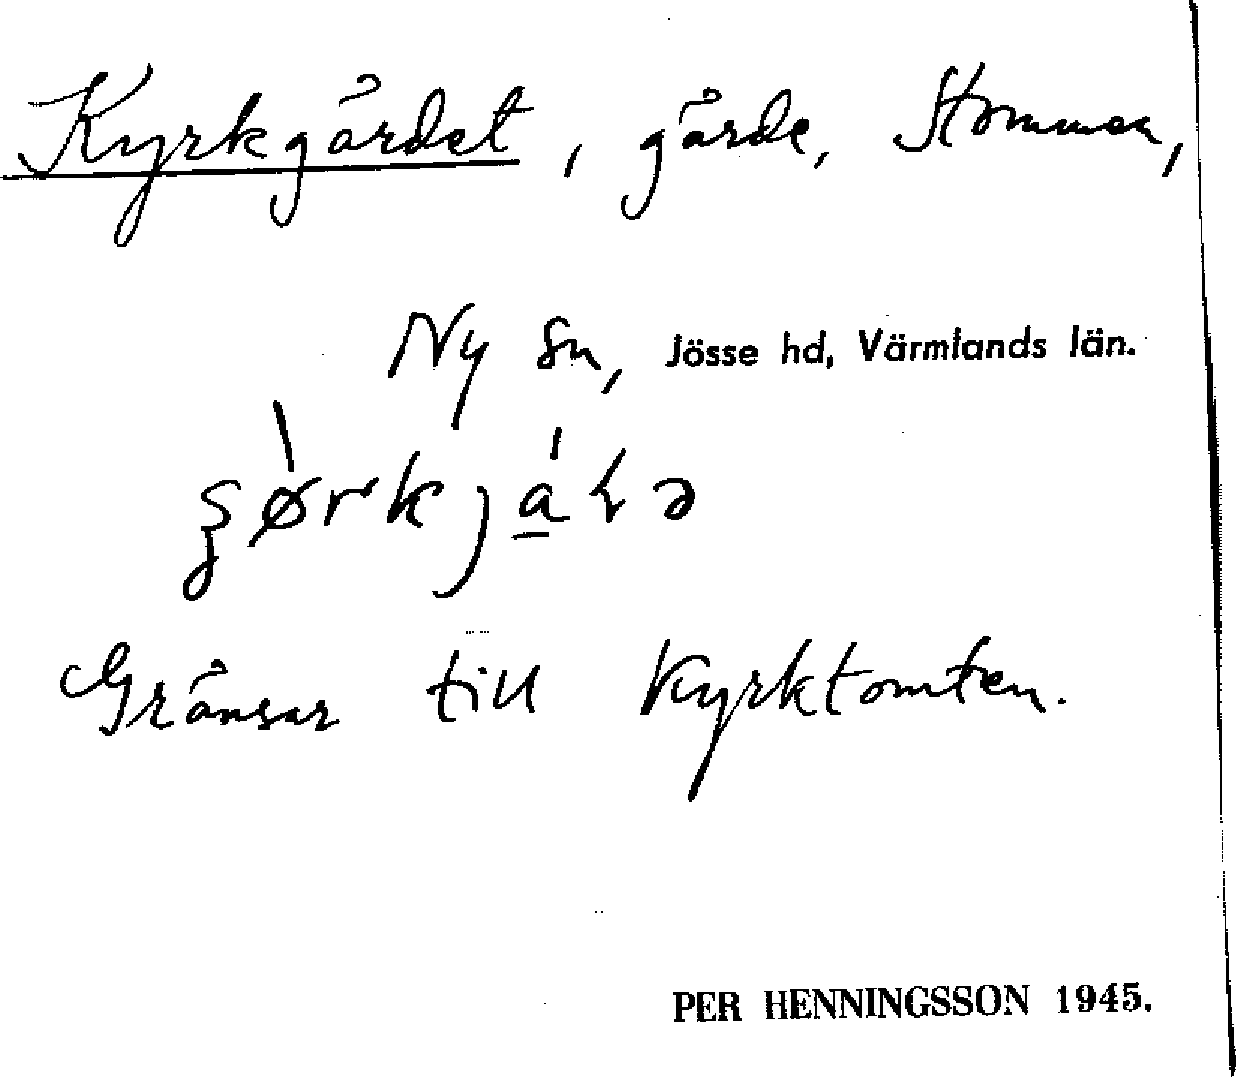 Kyrkgärdet, gärde, Stommen,
Ny sn, Jösse hd, Värmlands län.
Gränsar till Kyrktomten.
PER HENNINGSSON 1945.